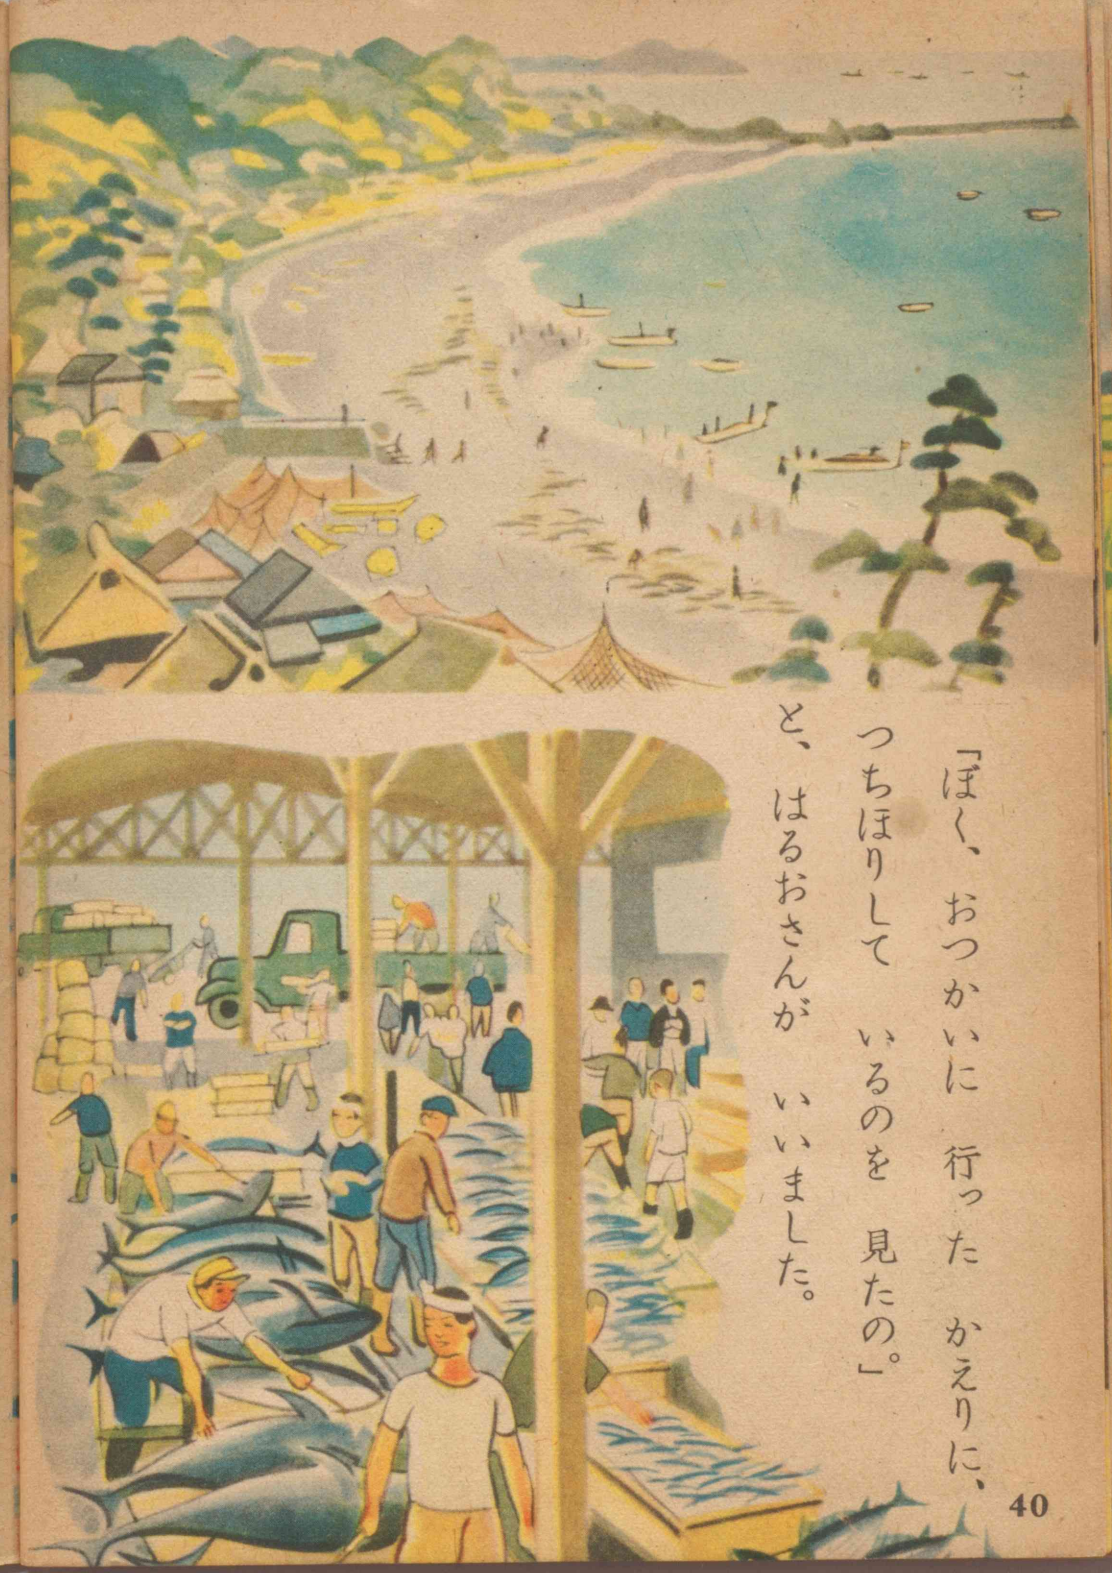 「ぼく、おつかいに 行った かえりに、
つちほりして いるのを 見たの。」
と、はるおさんが いいました。
40